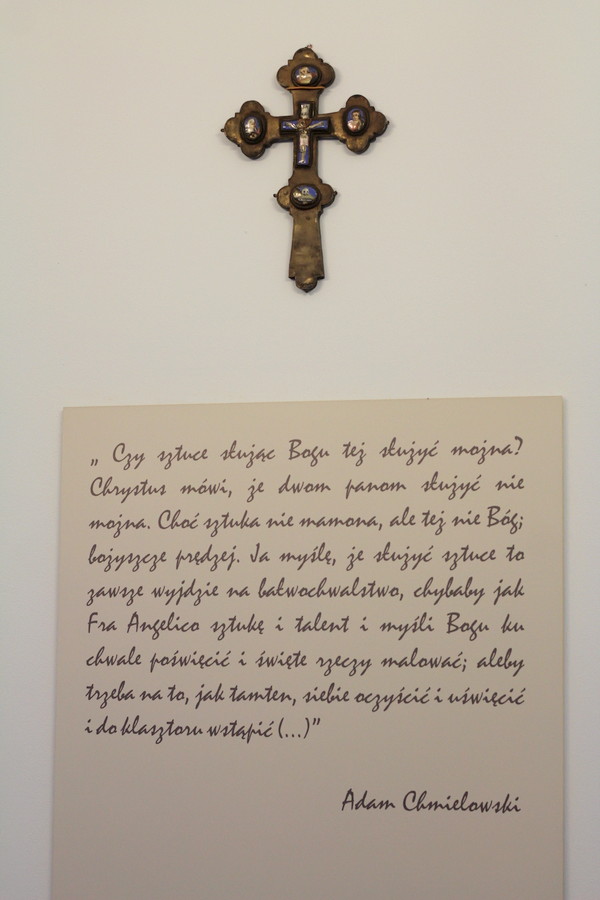 „ Czy sztuce służąc Bogu też służyć można?
Chrystus mówi, że dwom panom służyć nie
można. Choć sztuka nie mamona, ale też nie Bóg;
bożyszcze prędzej. Ja myślę, że służyć sztuce to
zawsze wyjdzie na bałwochwalstwo, chybaby jak
Fra Angelico sztukę i talent i myśli Bogu ku
chwale poświęcić i święte rzeczy malować; aleby
trzeba na to, jak tamten, siebie oczyścić i uświęcić
i do klasztoru wstąpić (...)”
Adam Chmielowski